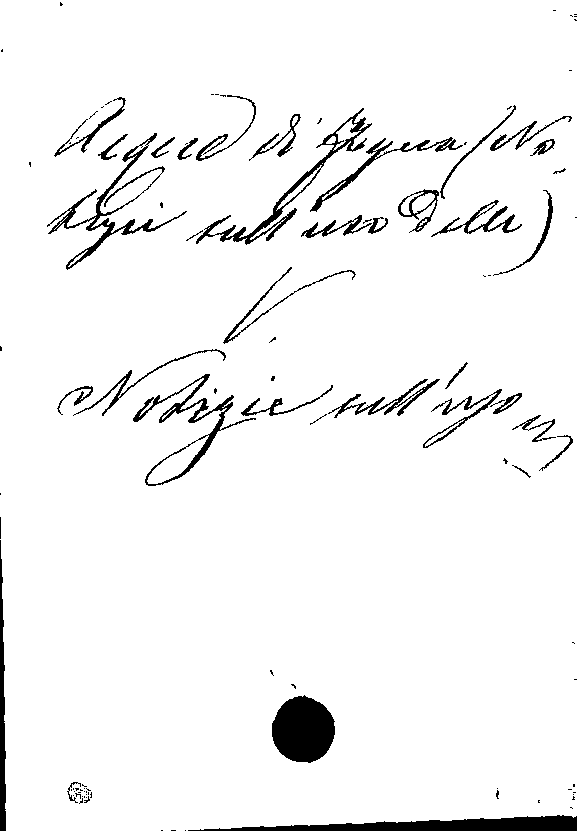 Acque di (No-
tizie sull'uso delle)
V.
Notizie sull'uso